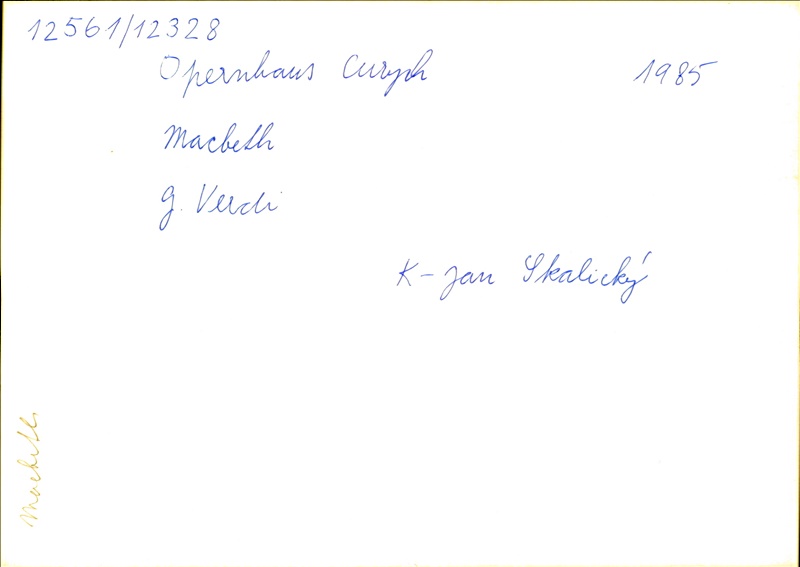 12561/12328
Opernhaus Curych 1985
Macbeth
G. Verdi
K - Jan Skalický
Macbeth